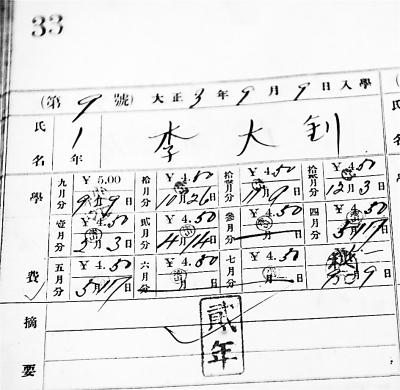 33
(第9號) 大正3年9月9日入學
氏名 1年 李大釗
學費
九月分 ¥5.00 拾月分 ¥4.50 拾壹月分 ¥4.50 拾貳月分 ¥4.50
9月9日 10月26日 11月9日 12月3日
壹月分 ¥4.50 貳月分 ¥4.50 參月分 ¥4.50 四月分 ¥4.50
3日 4月14日 月 日 5月17日
五月分 ¥4.50 六月分 ¥4.50 七月分 ¥4.50
5月17日 月 日 月 日 9日
摘要 貳年